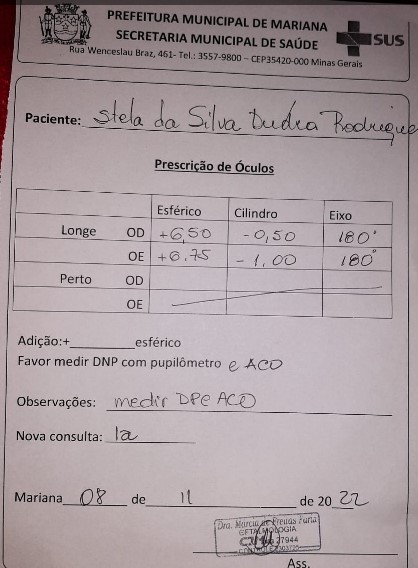 PREFEITURA MUNICIPAL DE MARIANA
SECRETARIA MUNICIPAL DE SAÚDE
SUS
Rua Wenceslau Braz, 461- Tel.: 3557-9800 – CEP35420-000 Minas Gerais
Paciente: Stela da Silva Rodrigue
Prescrição de Óculos
Esférico Cilindro Eixo
Longe OD +6,50 -0,50 180°
OE +6,75 -1,00 180°
Perto OD
OE
Adição:+________esférico
Favor medir DNP com pupilômetro e ACO
Observações: medir DPe ACO
Nova consulta: 1a
Mariana 08 de 11 de 2022
Dra. Marcia de Freitas
OFTALMOLOGIA
27944
Ass.